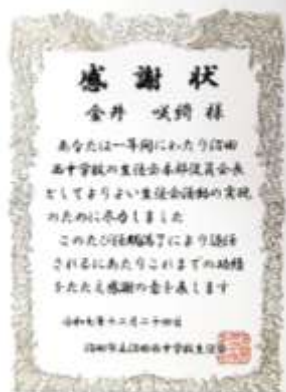 感謝状
金井 咲綺 様
あなたは一年間にわたり沼田
西中学校の生徒会本部役員会長
としてよりよい生徒会活動の実現
のために尽力しました
このたび任期満了により退任
されるにあたりこれまでの功績
をたたえ感謝の意を表します
令和七年十二月二十四日
沼田市立沼田西中学校生徒会